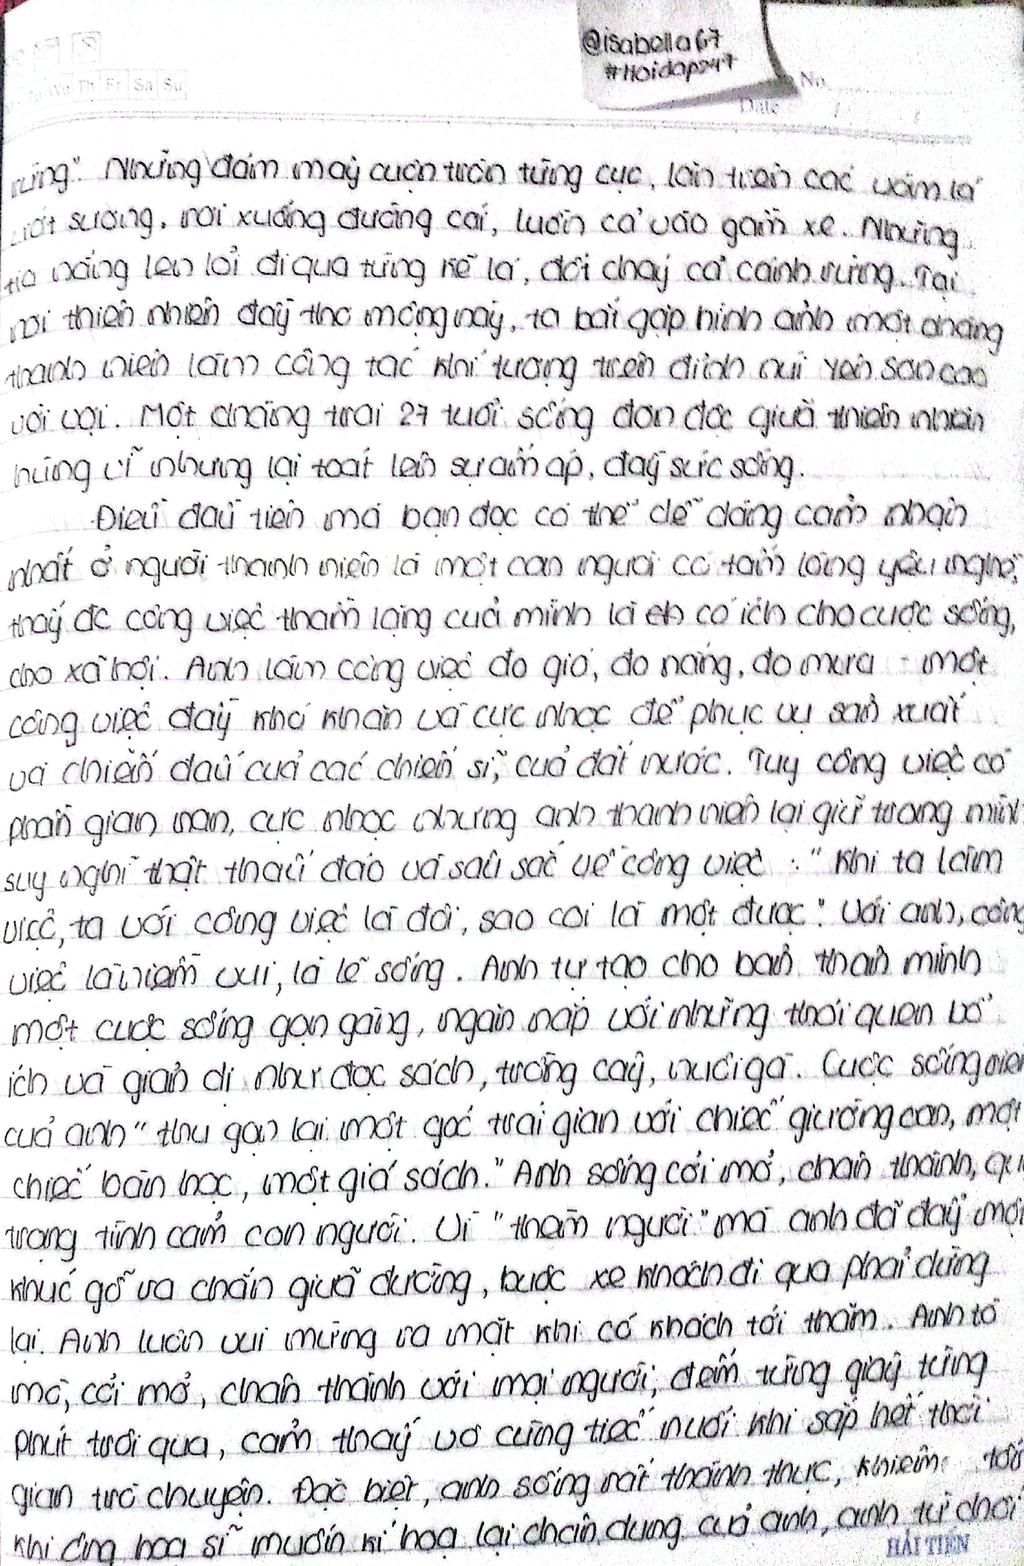 @isabella67
#Hoidap247
We Th Fr Sa Su
No.
Date / /
rừng". Những đám mây cuộn tròn từng cục, lăn trên các vòm lá
ướt sương, rơi xuống đường cái, luồn cả vào gầm xe. Những
tia nắng len lỏi đi qua từng kẽ lá, đốt cháy cả cánh rừng. Tại
nơi thiên nhiên đầy thơ mộng này, ta bắt gặp hình ảnh một chàng
thanh niên làm công tác khí tượng trên đỉnh núi Yên Sơn cao
vời vợi. Một chàng trai 27 tuổi sống đơn độc giữa thiên nhiên
hùng vĩ nhưng lại toát lên sự ấm áp, đầy sức sống.
Điều đầu tiên mà bạn đọc có thể dễ dàng cảm nhận
nhất ở người thanh niên là một con người có tấm lòng yêu nghề,
thấy đc công việc thầm lặng của mình là có ích cho cuộc sống,
cho xã hội. Anh làm công việc đo gió, đo nắng, đo mưa - một
công việc đầy khó khăn và cực nhọc để phục vụ sản xuất
và chiến đấu của các chiến sĩ, của đất nước. Tuy công việc có
phần gian nan, cực nhọc nhưng anh thanh niên lại giữ trong mình
suy nghĩ thật thấu đáo và sâu sắc về công việc: "Khi ta làm
việc, ta với công việc là đôi, sao coi là một được". Với anh, công
việc là niềm vui, là lẽ sống. Anh tự tạo cho bản thân mình
một cuộc sống gọn gàng, ngăn nắp với những thói quen bổ
ích và giản dị như đọc sách, trồng cây, nuôi gà. Cuộc sống
của anh "thu gọn lại một góc trái gian với chiếc giường con, một
chiếc bàn học, một giá sách." Anh sống cởi mở, chân thành, quý
trọng tình cảm con người. Vì "thèm người" mà anh đã đẩy một
khúc gỗ ra chắn giữa đường, buộc xe khách đi qua phải dừng
lại. Anh luôn vui mừng ra mặt khi có khách tới thăm. Anh tò
mò, cởi mở, chân thành với mọi người; đếm từng giây từng
phút trôi qua, cảm thấy vô cùng tiếc nuối khi sắp hết thời
gian trò chuyện. Đặc biệt, anh sống rất thành thực, khiêm tốn
khi ông họa sĩ muốn kí họa lại chân dung của anh, anh từ chối
HẢI TIẾN